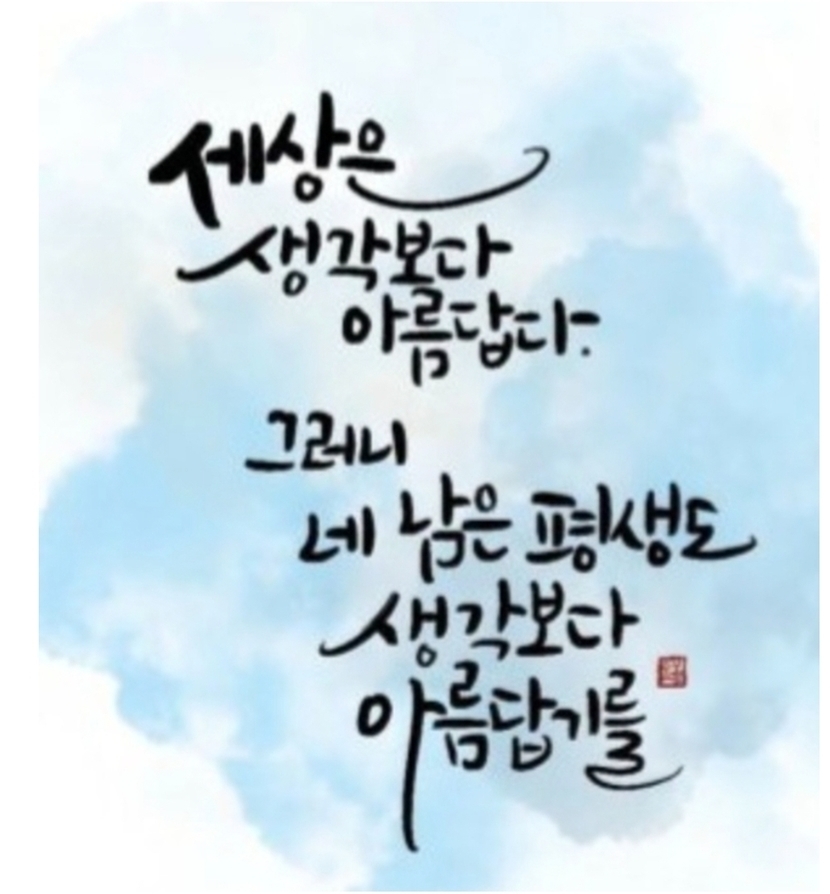 세상은
생각보다
아름답다.
그러니
네 남은 평생도
생각보다
아름답기를